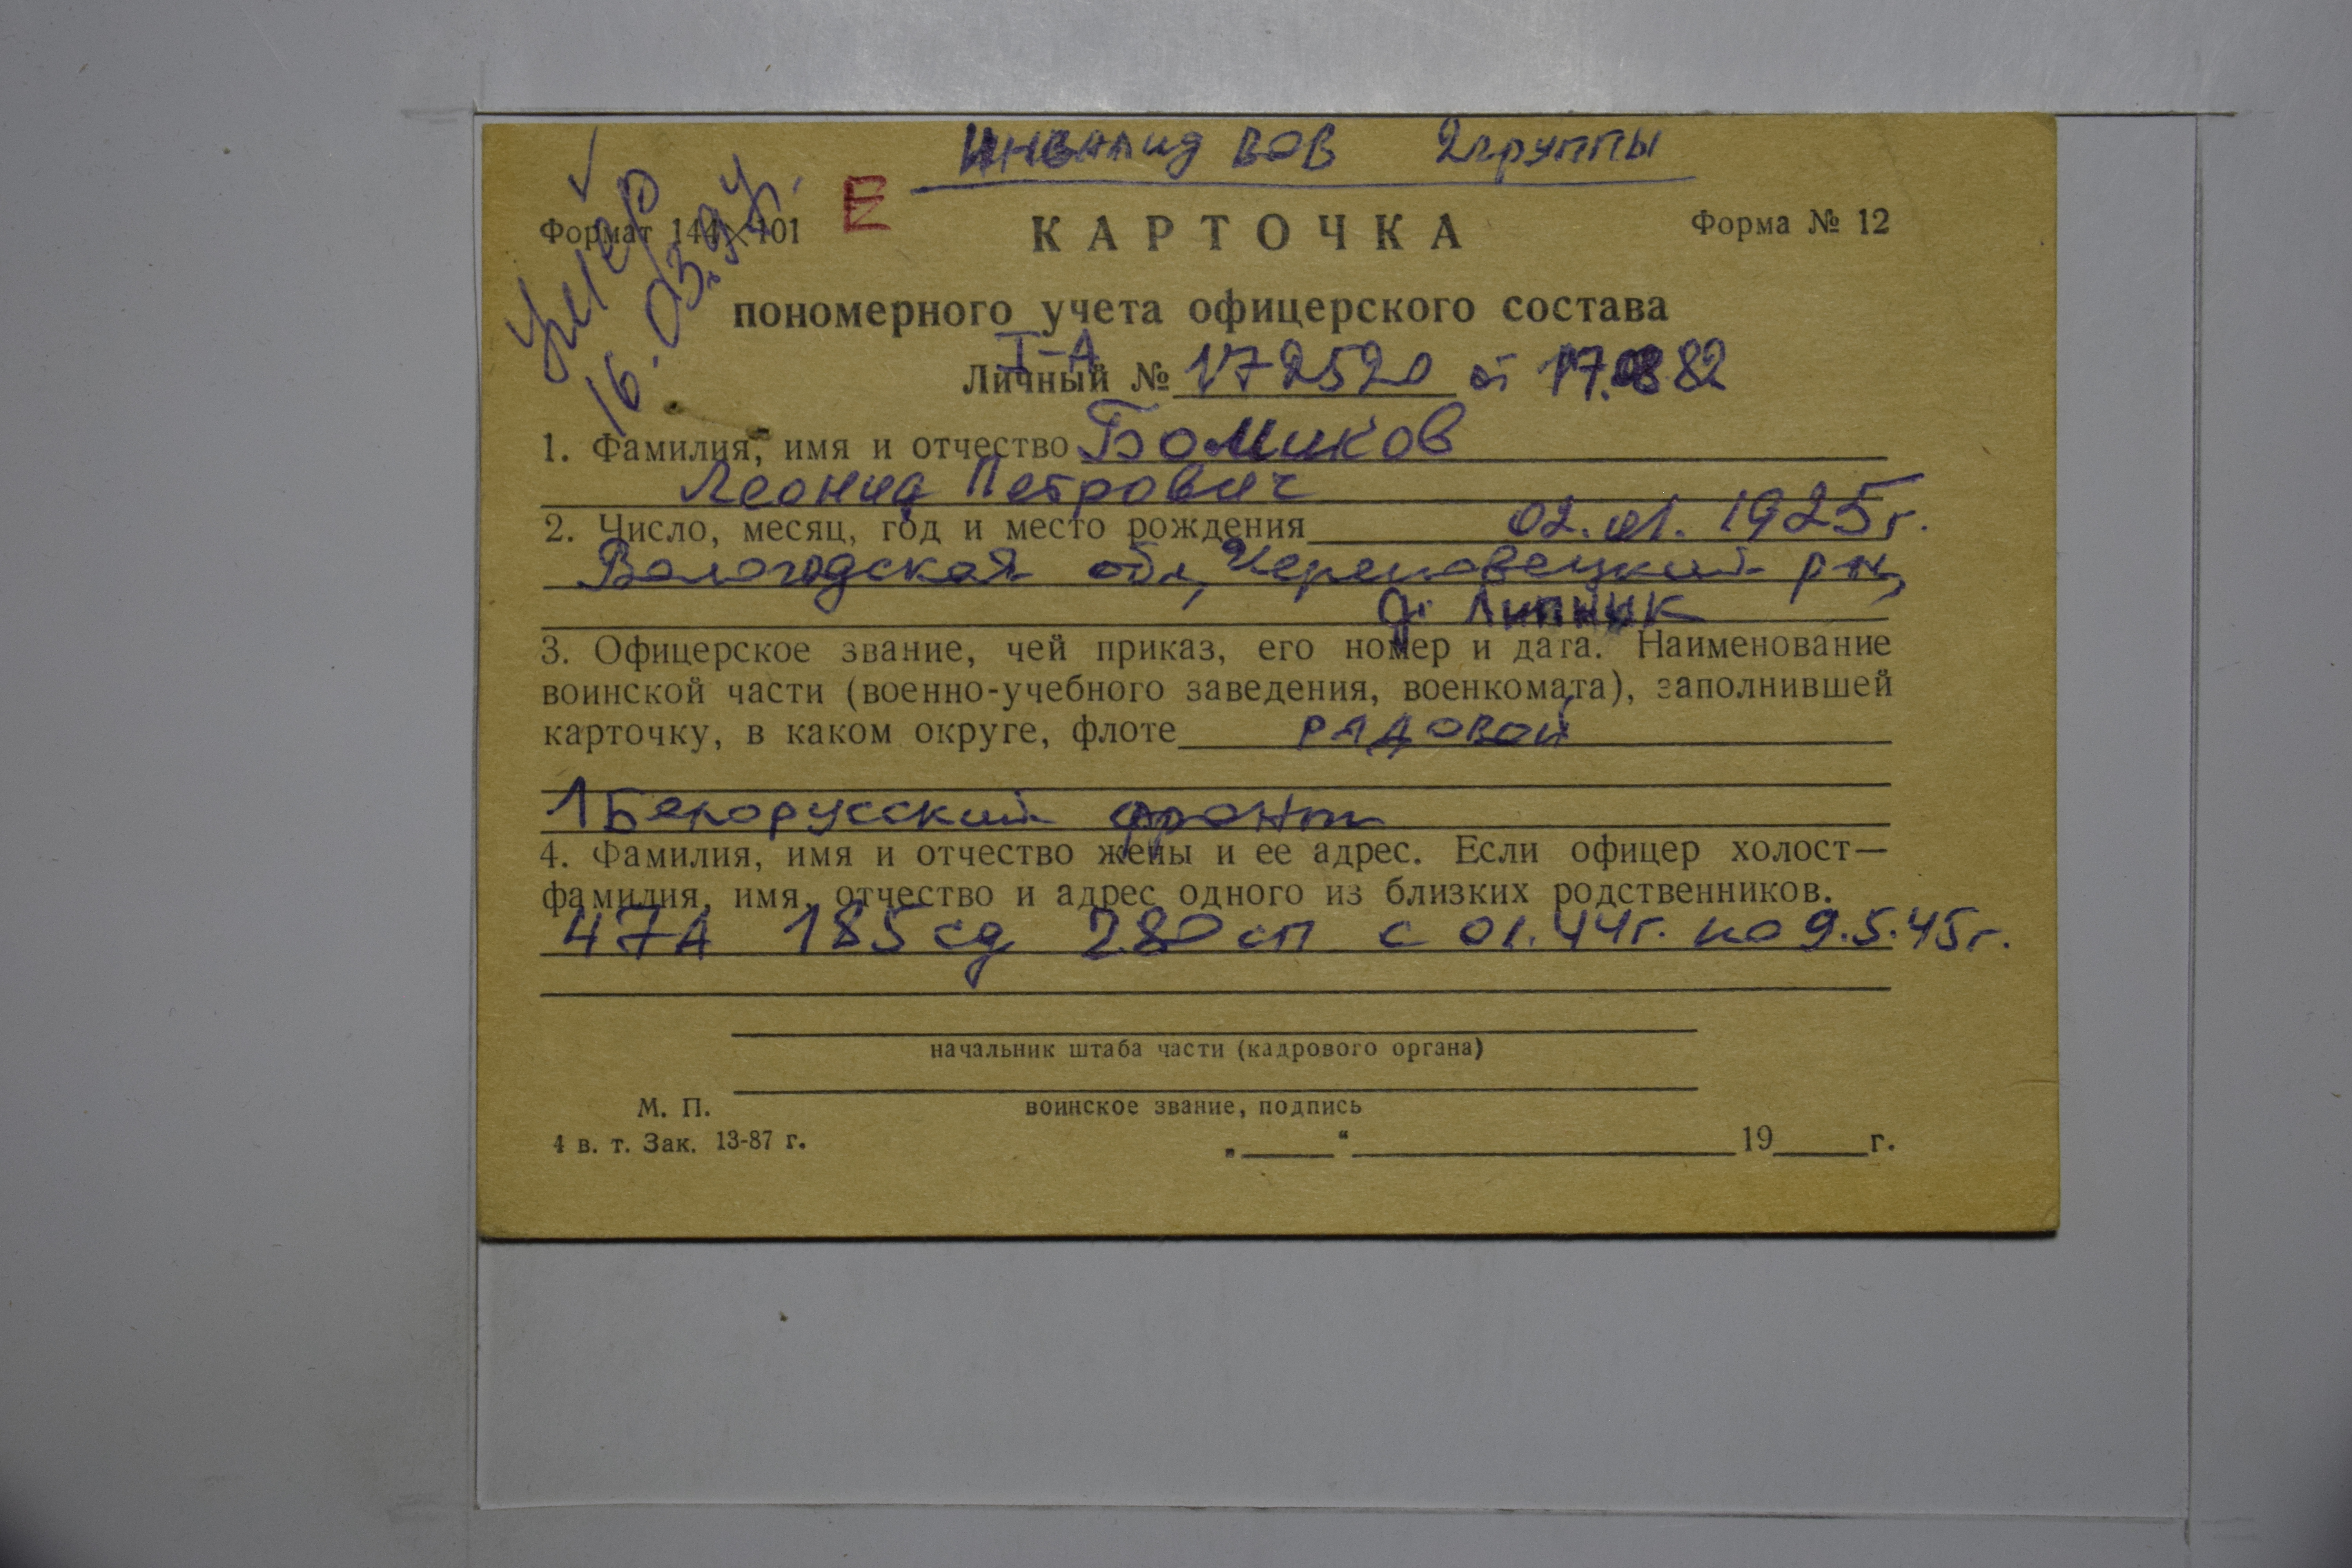 Инвалид ВОВ 2 группы
Формат 144×101
Форма № 12
умер
16.03.94.
КАРТОЧКА
пономерного учета офицерского состава
I-А
Личный № 172520 от 17.08.82
1. Фамилия, имя и отчество Бомиков
Леонид Петрович
2. Число, месяц, год и место рождения 02.01.1925г.
Вологодская обл, Череповецкий р-н,
д. Липник
3. Офицерское звание, чей приказ, его номер и дата. Наименование
воинской части (военно-учебного заведения, военкомата), заполнившей
карточку, в каком округе, флоте рядовой
1 Белорусский фронт
4. Фамилия, имя и отчество жены и ее адрес. Если офицер холост—
фамилия, имя, отчество и адрес одного из близких родственников.
47А 185 сд 280 сп с 01.44г. по 9.5.45г.
начальник штаба части (кадрового органа)
М. П.
воинское звание, подпись
4 в. т. Зак. 13-87 г.
„ “ 19 г.